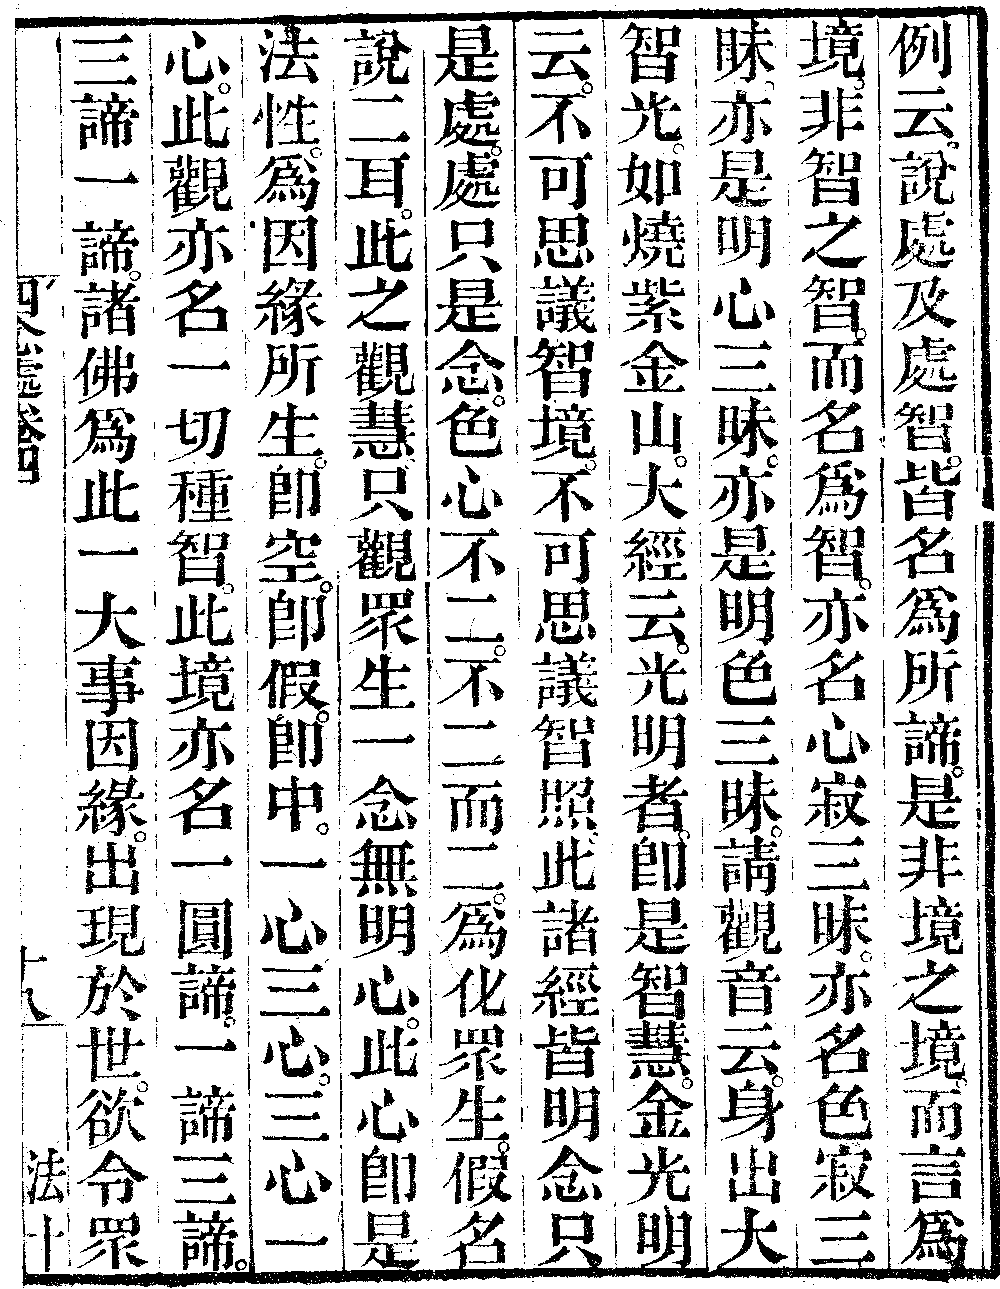 例云。說處及處智。皆名爲所諦。是非境之境。而言爲
境。非智之智。而名爲智。亦名心寂三昧。亦名色寂三
昧。亦是明心三昧。亦是明色三昧。請觀音云。身出大
智光。如燒紫金山。大經云。光明者。卽是智慧。金光明
云。不可思議智境。不可思議智照。此諸經皆明念只
是處。處只是念。色心不二。不二而二。爲化眾生。假名
說二耳。此之觀慧。只觀眾生一念無明心。此心卽是
法性。爲因緣所生。卽空。卽假。卽中。一心三心。三心一
心。此觀亦名一切種智。此境亦名一圓諦。一諦三諦。
三諦一諦。諸佛爲此一大事因緣。出現於世。欲令眾
四念處卷四
十八
法十